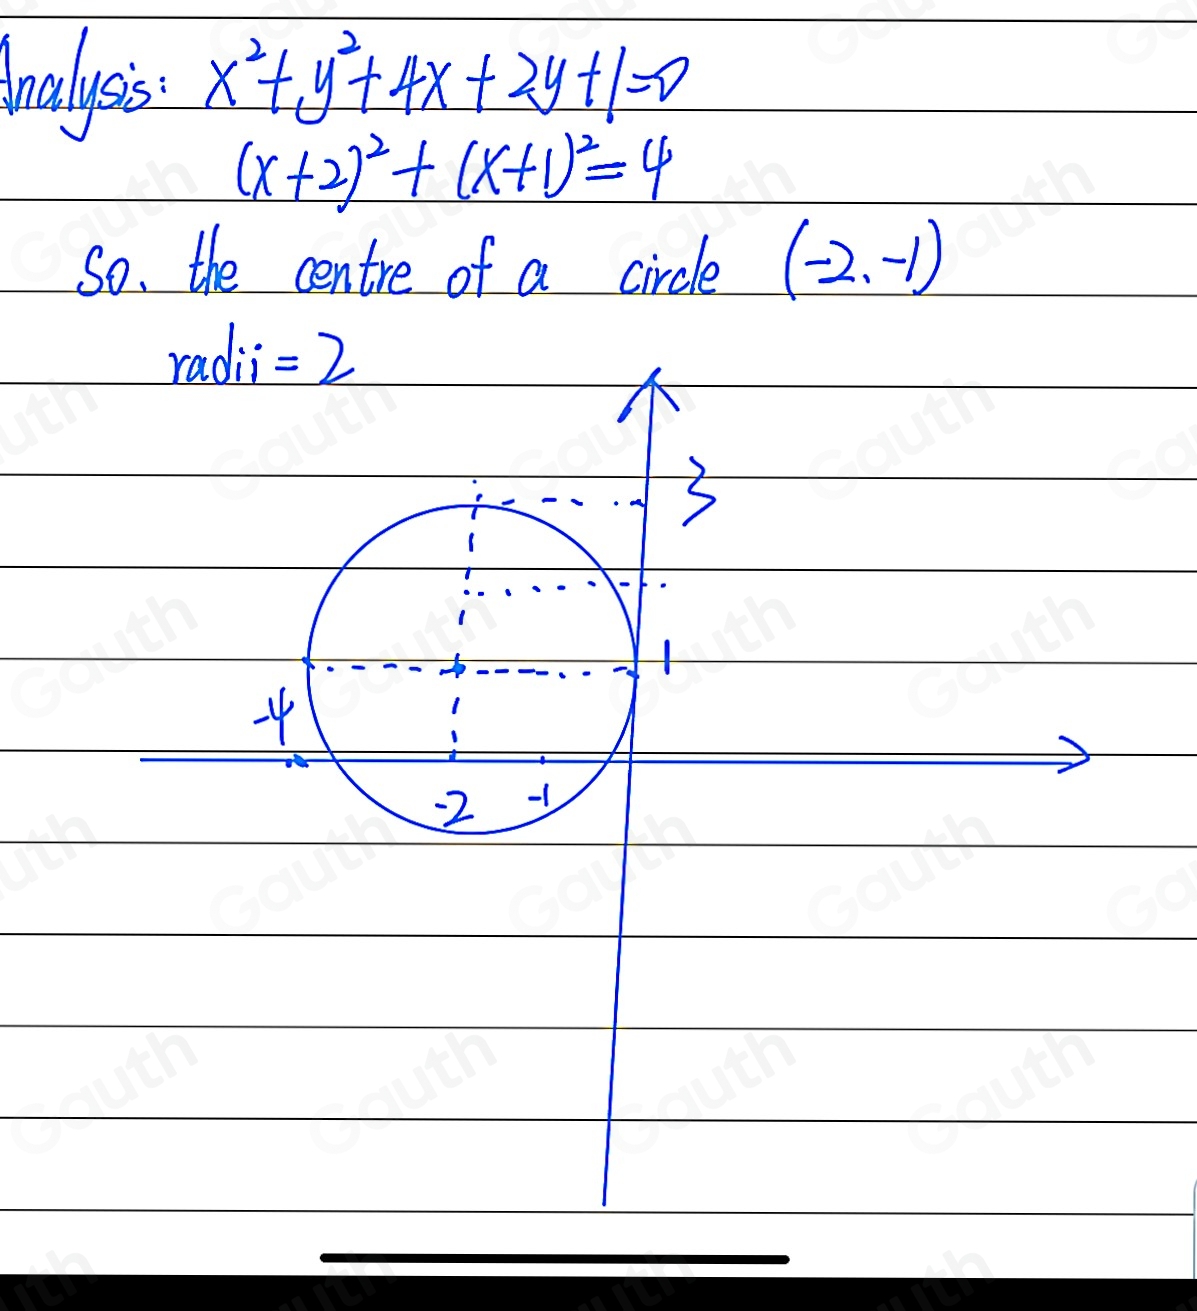 Analysis: x²+y²+4x+2y+1=0
(x+2)²+(x+1)²=4
So. the centre of a circle (-2.-1)
radii = 2
3
1
-4
-2 -1
Gauth